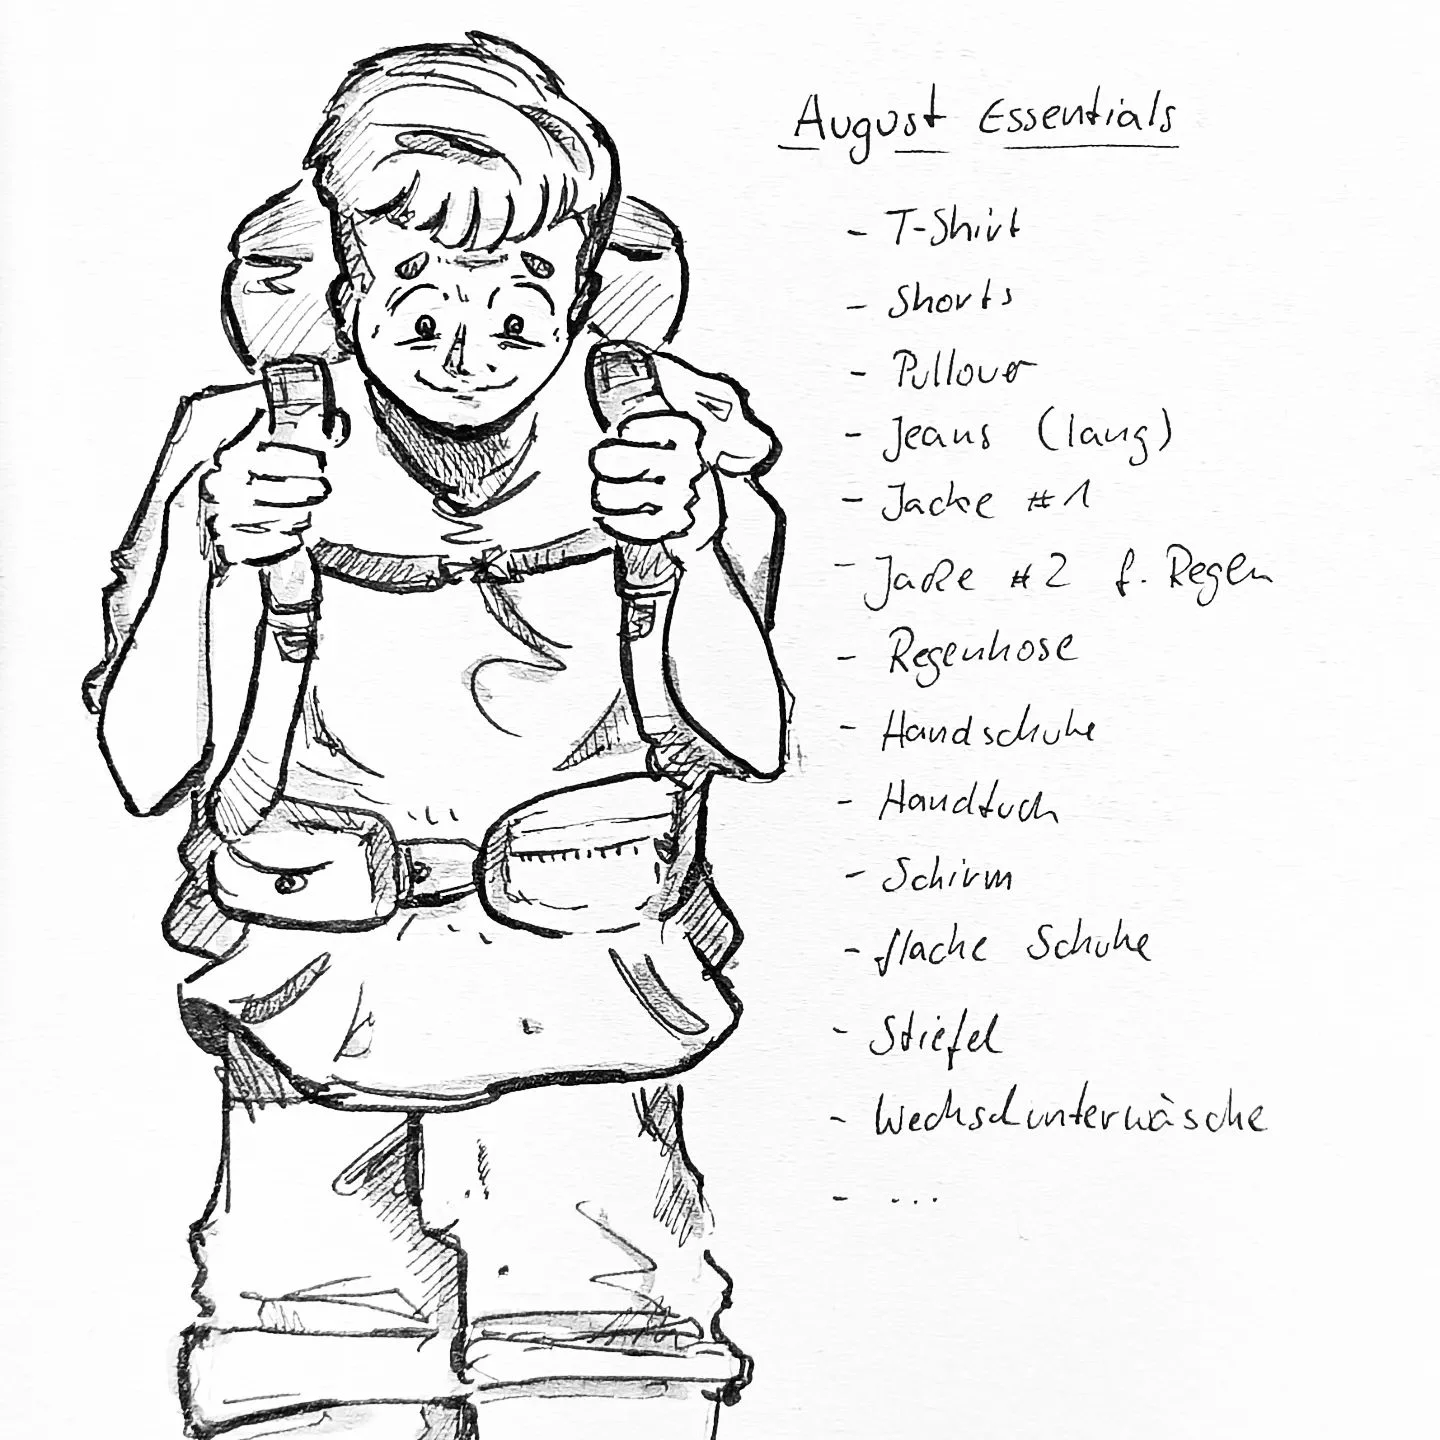 August Essentials
- T-Shirt
- Shorts
- Pullover
- Jeans (lang)
- Jacke #1
- Jacke #2 f. Regen
- Regenhose
- Handschuhe
- Handtuch
- Schirm
- flache Schuhe
- Stiefel
- Wechselunterwäsche
- ...